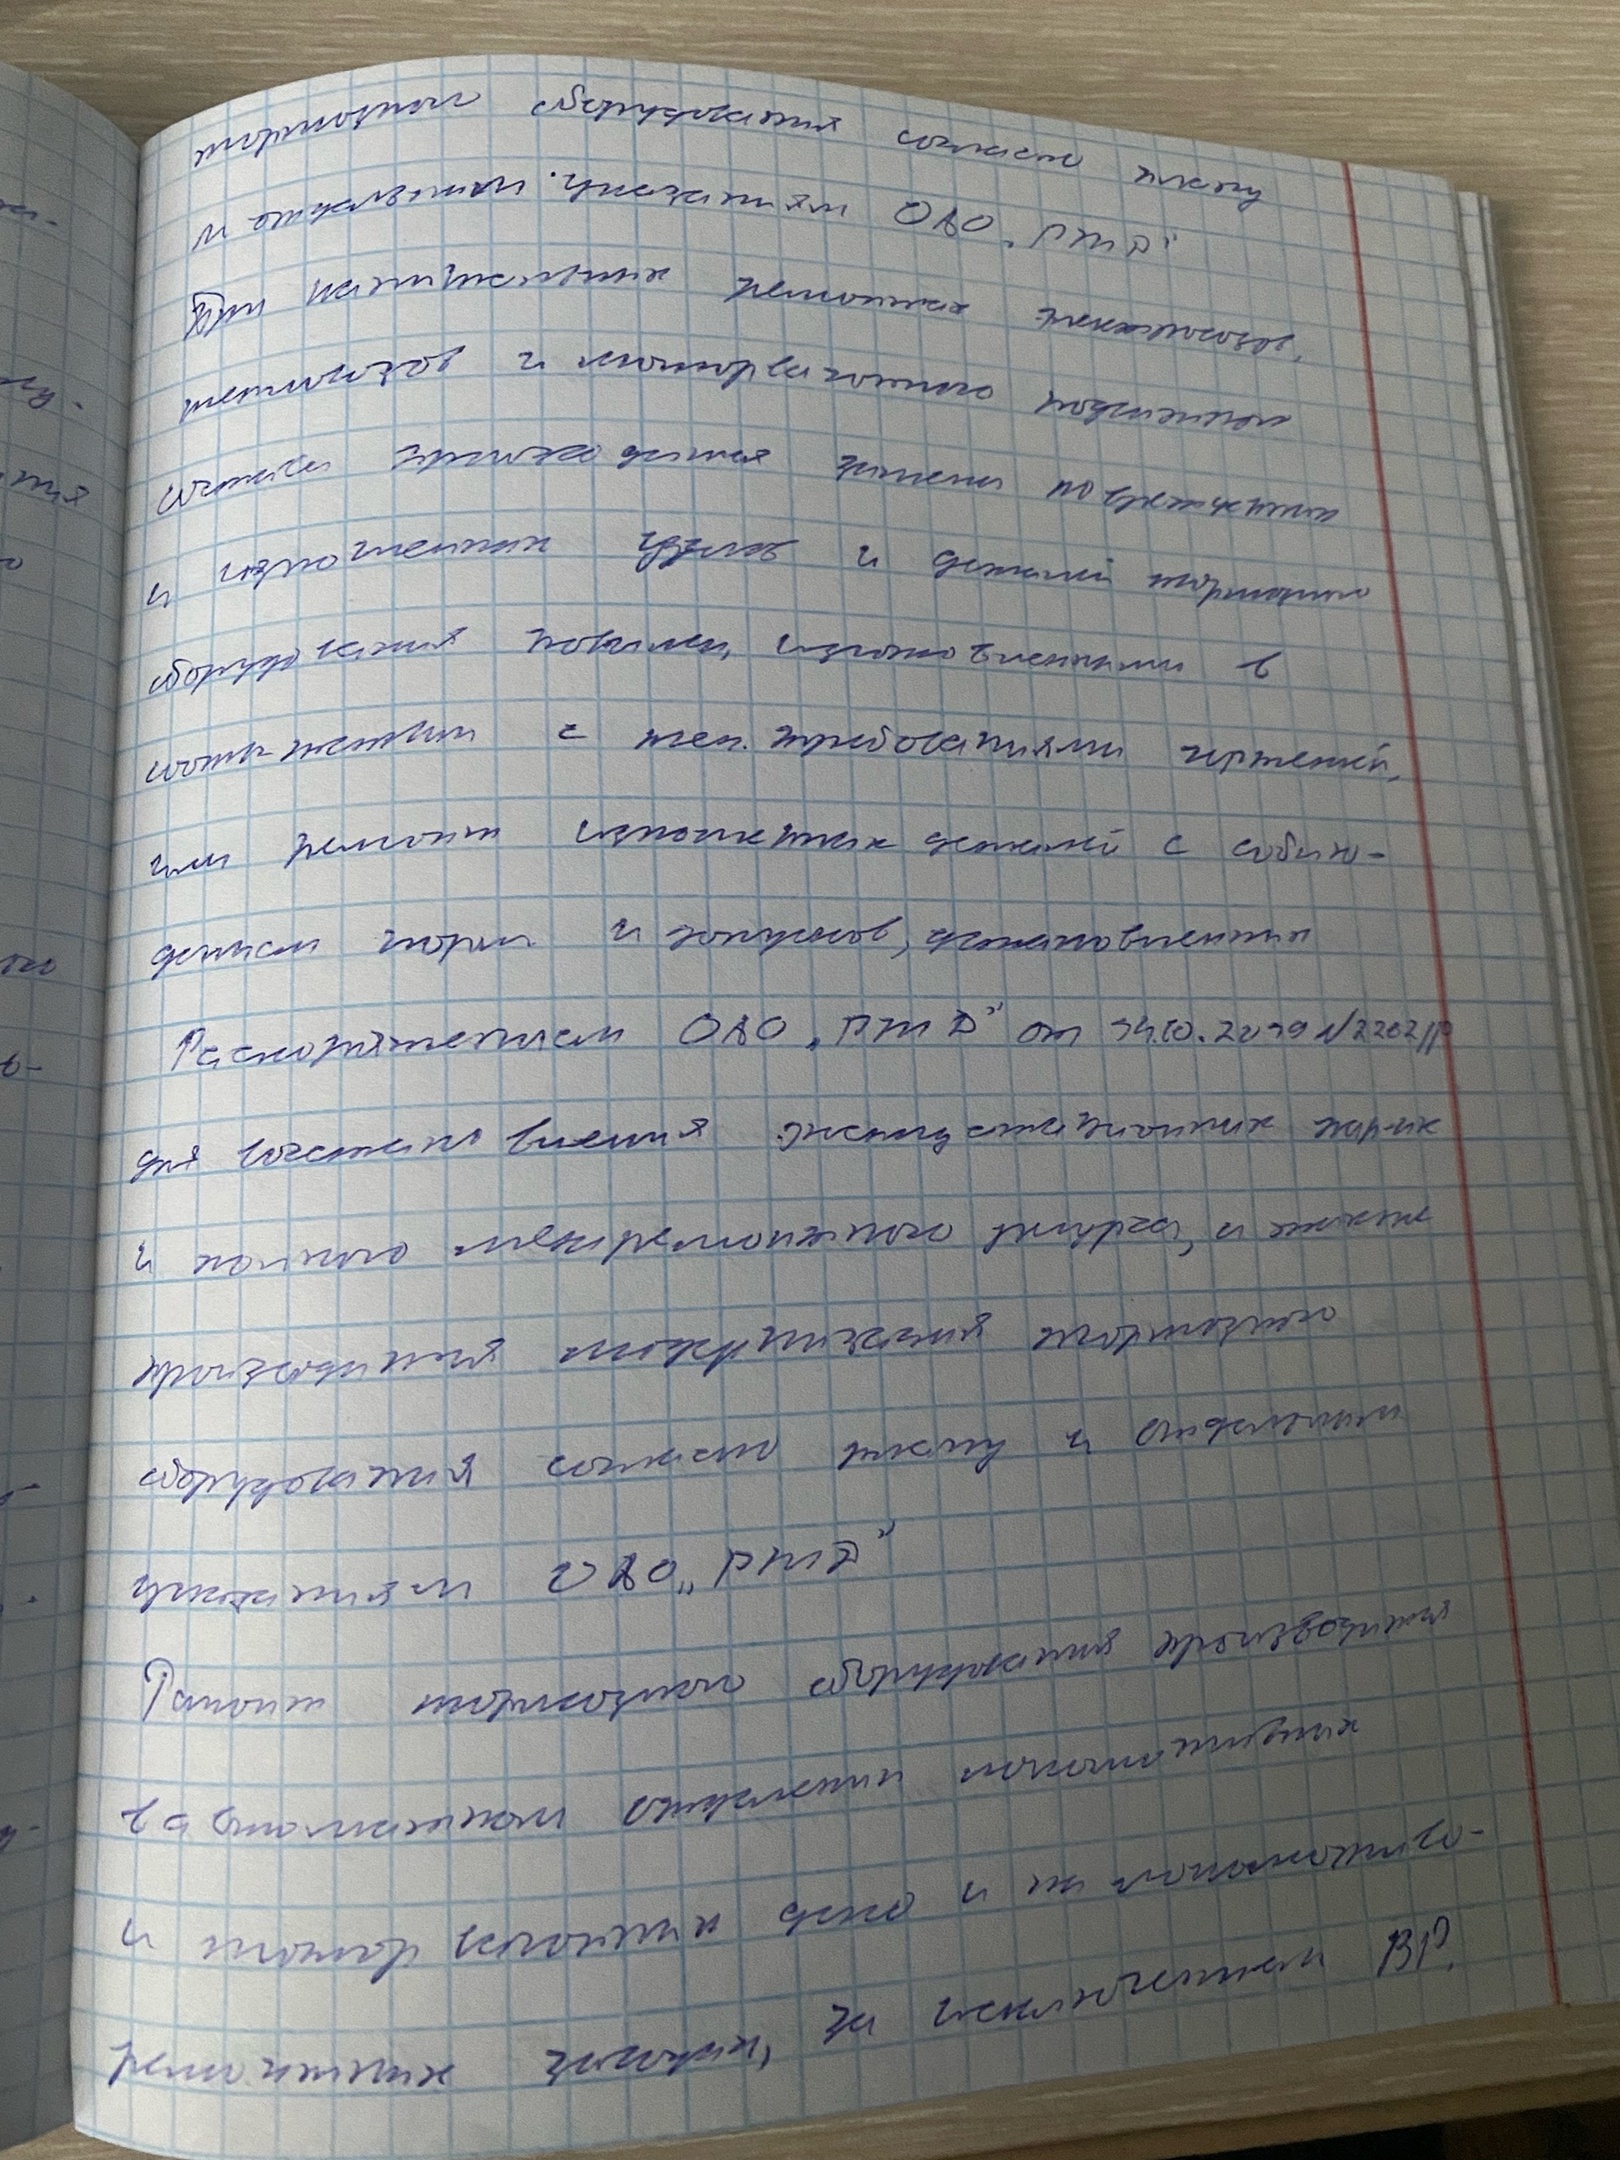 тормозного оборудования согласно плану
и отдельным указаниям ОАО „РЖД"
При капитальных ремонтах электровозов,
тепловозов и моторвагонного подвижного
состава производится замена повреженных
и изношенных узлов и деталей тормозного
оборудования новыми, изготовленными в
соответствии с тех. требованиями чертежей,
или ремонт изношенных деталей с соблю-
дением норм и допусков, установленных
Распоряжением ОАО „РЖД" от 14.10.2019 №2262/р
для восстановления эксплуатационных хар-ик
и полного межремонтного ресурса, а также
производится модернизация тормозного
оборудования согласно плану и отдельным
указаниям ОАО „РЖД"
Ремонт тормозного оборудования производится
в автоматном отделении локомотивных
и моторвагонных депо и на локомотиво-
ремонтных заводах, за исключением ВР.